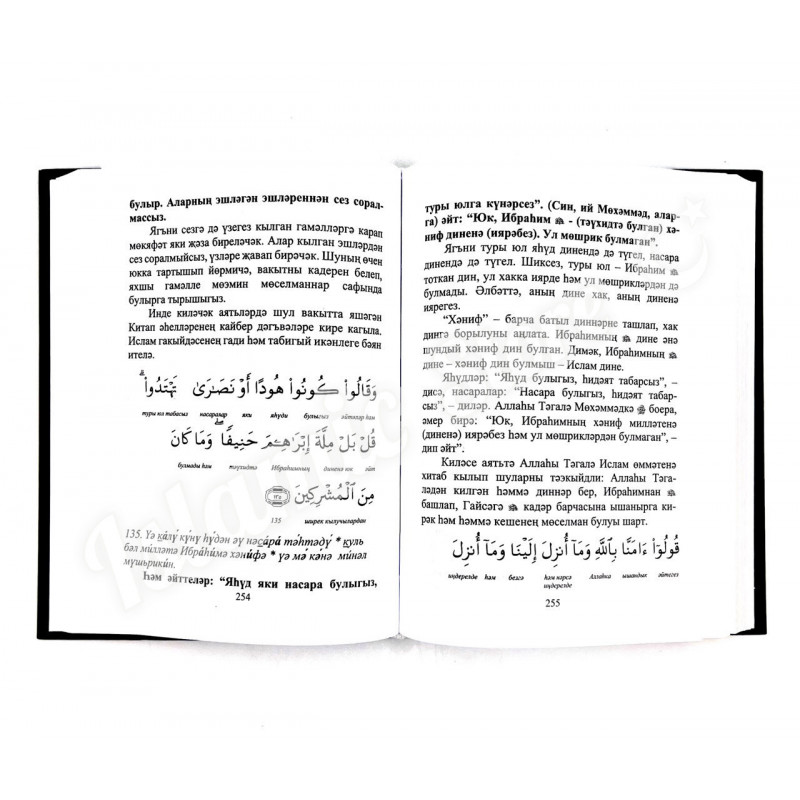 булыр. Аларның эшләгән эшләреннән сез сорал-
массыз.
Ягъни сезгә дә үзегез кылган гамәлләргә карап
мөкяфәт яки җәза биреләчәк. Алар кылган эшләрдән
сез соралмыйсыз, үзләре җавап бирәчәк. Шуның өчен
юкка тартышып йөрмичә, вакытны кадерен белеп,
яхшы гамәлле мөэмин мөселманнар сафында
булырга тырышыгыз.
Инде киләчәк аятьләрдә шул вакытта яшәгән
Китап әһелләренең кайбер дәгъвәләре кире кагыла.
Ислам гакыйдәсенең гади һәм табигый икәнлеге бәян
ителә.
وَقَالُوا۟ كُونُوا۟ هُودًا أَوْ نَصَٰرَىٰ تَهْتَدُوا۟ ۗ
туры юл табасыз насаралар яки яһүди булыгыз әйтәләр һәм
قُلْ بَلْ مِلَّةَ إِبْرَٰهِـۧمَ حَنِيفًا ۖ وَمَا كَانَ
булмады һәм тәүхидтә Ибраһимның диненә юк әйт
مِنَ ٱلْمُشْرِكِينَ ١٣٥
135 ширек кылучылардан
135. Үә кāлӯ кӯнӯ һӯдән әү нәсāрā тәһтәдӯ * куль
бәл мūлләтә Ибрāһūмә хәнūфә * үә мә кәнә мūнәл
мӯшьрикūн.
Һәм әйттеләр: “Яһүд яки насара булыгыз,
254
туры юлга күнәрсез”. (Син, ий Мөхәммәд, алар-
га) әйт: “Юк, Ибраһим ﷺ - (тәүхидтә булган) хә-
ниф диненә (иярәбез). Ул мөшрик булмаган”.
Ягъни туры юл яһүд динендә дә түгел, насара
динендә дә түгел. Шиксез, туры юл – Ибраһим ﷺ
тоткан дин, ул хакка иярде һәм ул мөшрикләрдән дә
булмады. Әлбәттә, аның дине хак, аның диненә
иярегез.
“Хәниф” – барча батыл диннәрне ташлап, хак
дингә борылуны аңлата. Ибраһимның ﷺ дине әнә
шундый хәниф дин булган. Димәк, Ибраһимның ﷺ
дине – хәниф дин булмыш – Ислам дине.
Яһүдләр: “Яһүд булыгыз, һидәят табарсыз”, –
дисә, насаралар: “Насара булыгыз, һидәят табар-
сыз”, – диләр. Аллаһы Тәгалә Мөхәммәдкә ﷺ боера,
әмер бирә: “Юк, Ибраһимның хәниф милләтенә
(диненә) ияребез һәм ул мөшрикләрдән булмаган”, –
дип әйт”.
Киләсе аятьтә Аллаһы Тәгалә Ислам өммәтенә
хитаб кылып шуларны тәэкыйдли: Аллаһы Тәга-
ләдән килгән һәммә диннәр бер, Ибраһимнан ﷺ
башлап, Гайсәгә ﷺ кадәр барчасына ышанырга ки-
рәк һәм һәммә кешенең мөселман булуы шарт.
قُولُوٓا۟ ءَامَنَّا بِٱللَّهِ وَمَآ أُنزِلَ إِلَيْنَا وَمَآ أُنزِلَ
иңдерелде һәм безгә һәм нәрсә Аллаһка ышандык әйтегез
иңдерелде
255